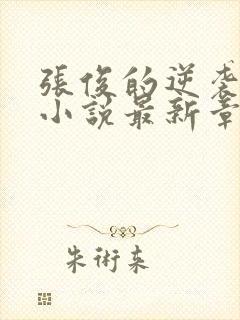 張俊的逆袭
小說最新章
朱術来